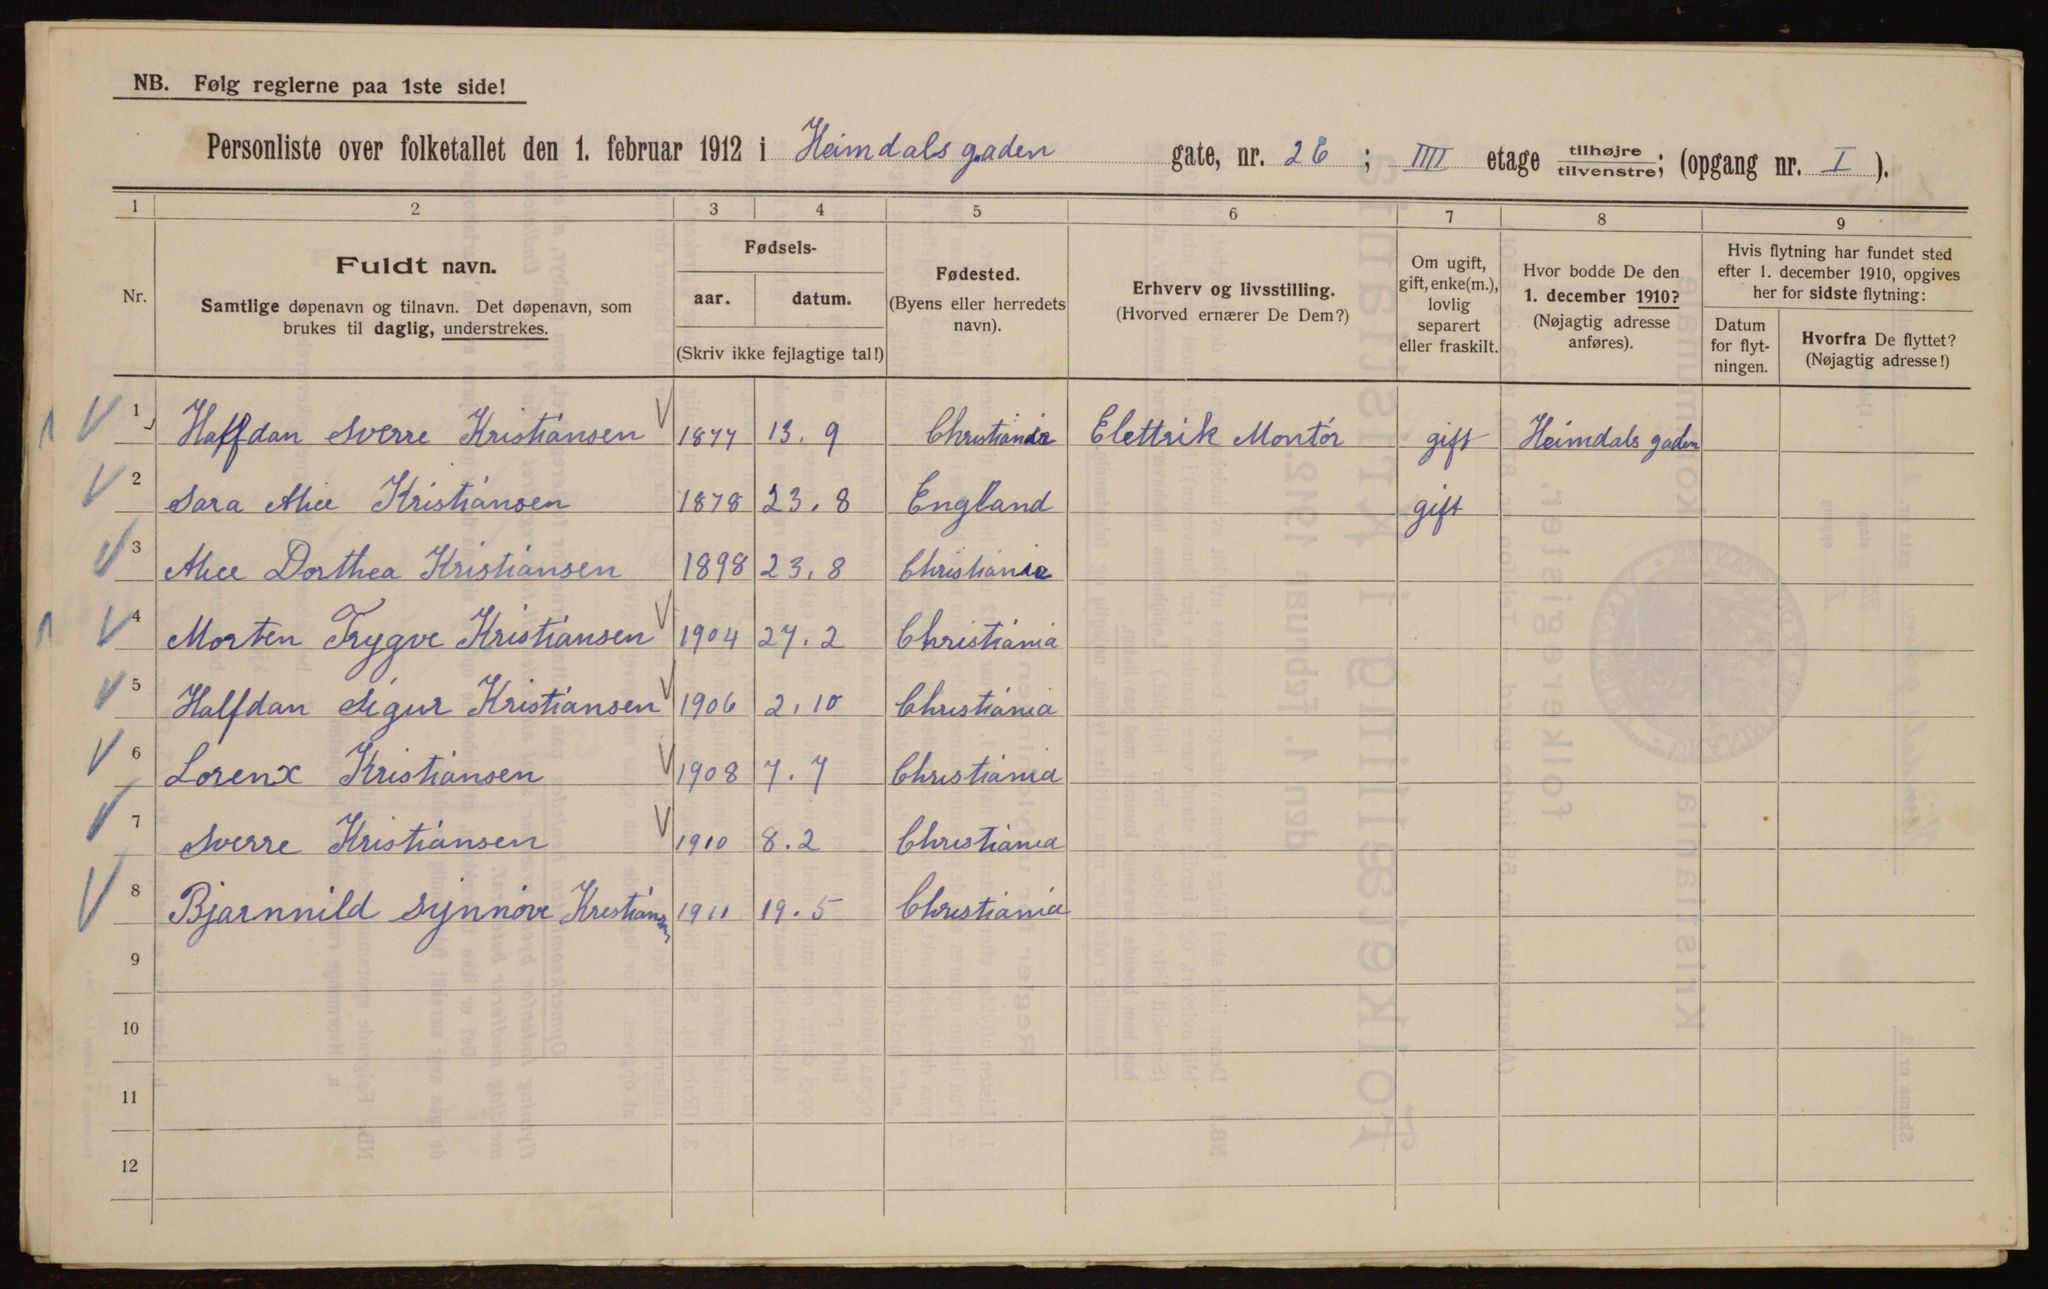 NB. Følg reglerne paa 1ste side!
Personliste over folketallet den 1. februar 1912 i Heimdals gaden gate, nr. 26 ; IIII etage tilhøjre/tilvenstre; (opgang nr. I ).
1 2 3 4 5 6 7 8 9
Nr.
Fuldt navn.
Samtlige døpenavn og tilnavn. Det døpenavn, som
brukes til daglig, understrekes.
Fødsels-
aar. datum.
(Skriv ikke fejlagtige tal!)
Fødested.
(Byens eller herredets
navn).
Erhverv og livsstilling.
(Hvorved ernærer De Dem?)
Om ugift,
gift, enke(m.),
lovlig
separert
eller fraskilt.
Hvor bodde De den
1. december 1910?
(Nøjagtig adresse
anføres).
Hvis flytning har fundet sted
efter 1. december 1910, opgives
her for sidste flytning:
Datum
for flyt-
ningen.
Hvorfra De flyttet?
(Nøjagtig adresse!)
1 Halfdan Sverre Kristiansen 1877 13. 9 Christiania Elettrik Montör gift Heimdals gaden
2 Sara Alice Kristiansen 1878 23. 8 England gift
3 Alice Dorthea Kristiansen 1898 23. 8 Christiania
4 Morten Trygve Kristiansen 1904 27. 2 Christiania
5 Halfdan Sigur Kristiansen 1906 2. 10 Christiania
6 Lorenx Kristiansen 1908 7. 7 Christiania
7 Sverre Kristiansen 1910 8. 2 Christiania
8 Bjarnnild Synnöve Kristiansen 1911 19. 5 Christiania
9
10
11
12